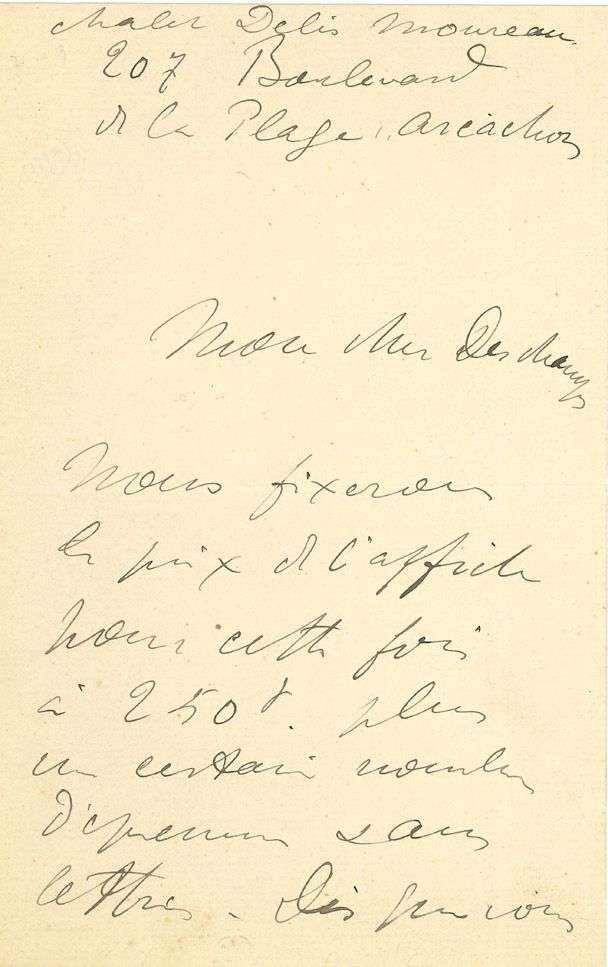 chalet Delis Moureau
207 Boulevard
de la Plage, Arcachon
Mon cher Deschamps
Nous fixerons
le prix de l'affiche
pour cette fois
à 250f. plus
un certain nombre
d'épreuves sans
lettres. Dès que vous